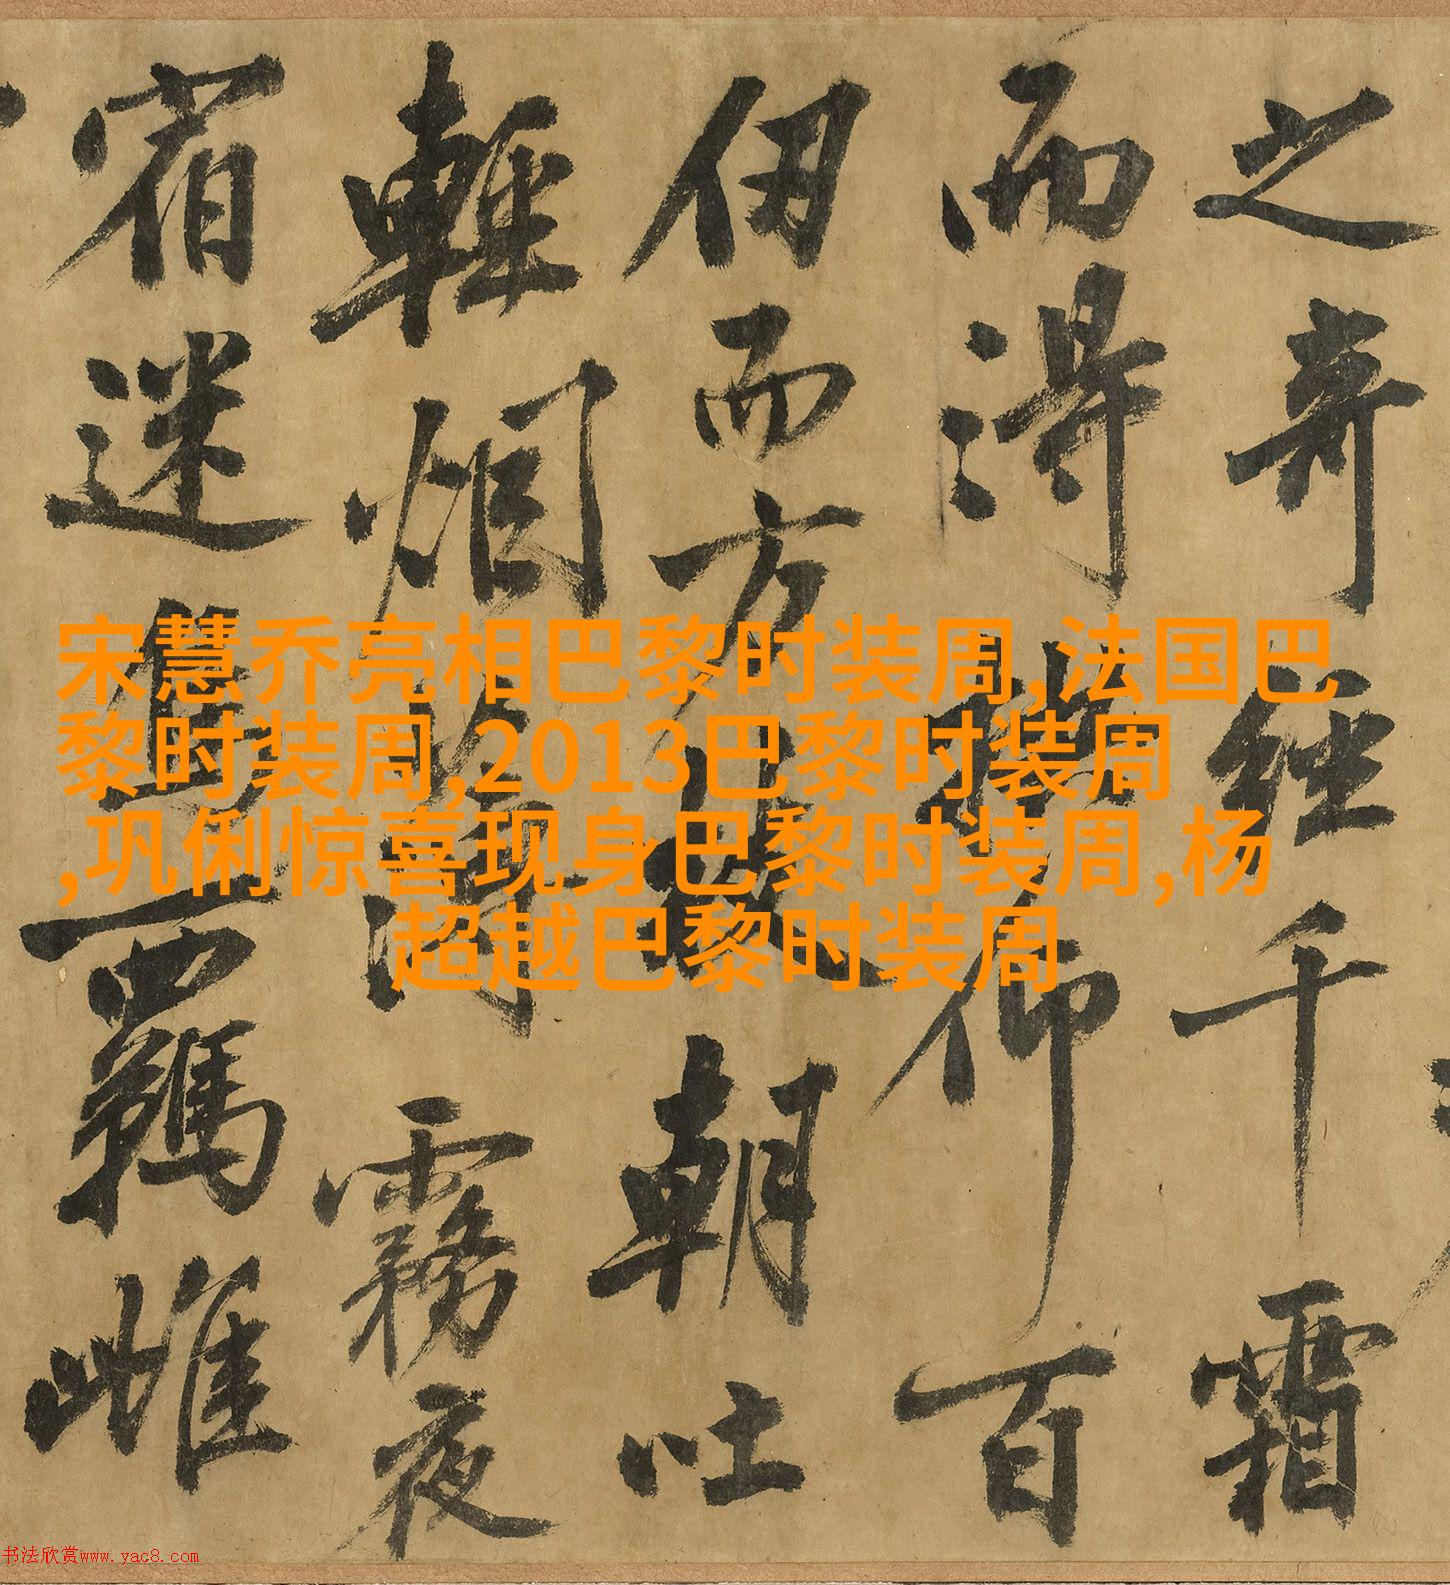 之奇經千霜
而得仰百
伊而方朝吐
輕烟霧夜
宿迷鳥羈雌
宋慧乔亮相巴黎时装周,法国巴
黎时装周,2013巴黎时装周
,巩俐惊喜现身巴黎时装周,杨
超越巴黎时装周
书法欣赏www.yac8.com